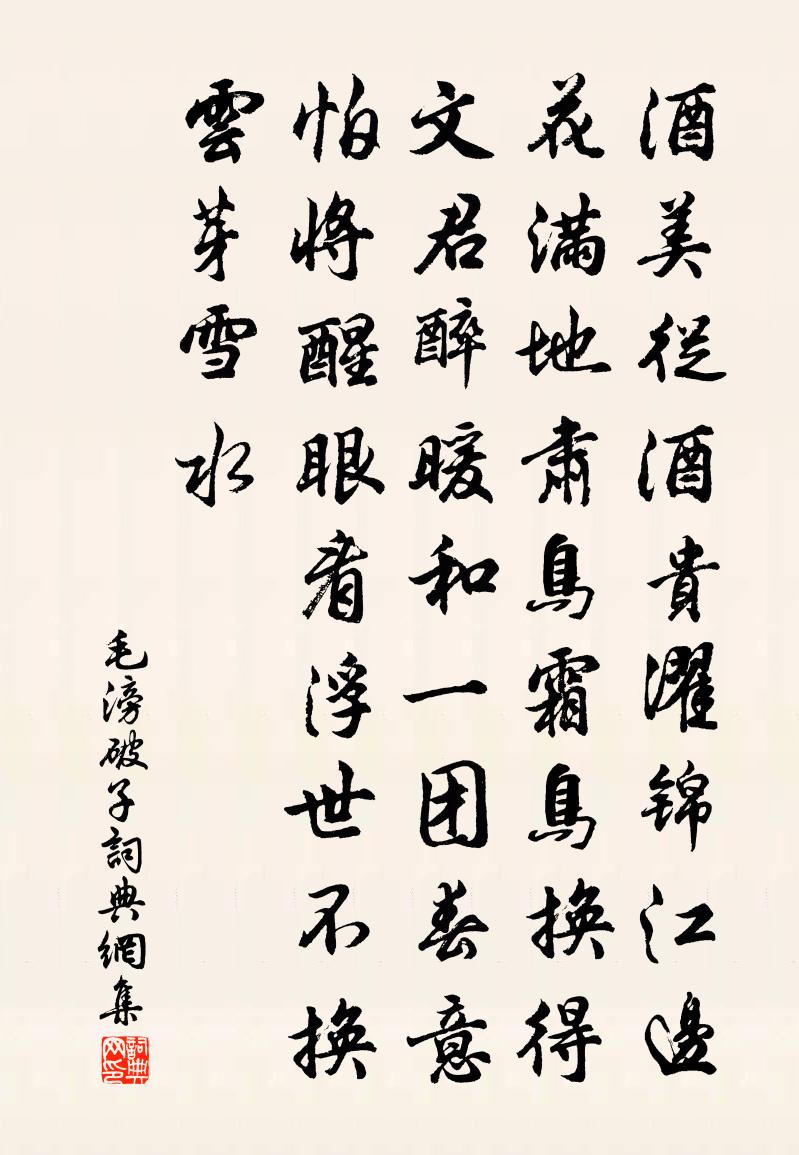 酒美從酒貴濯錦江邊
花滿地肅鳥霜鳥換得
文君醉暖和一团春意
怕將醒眼看浮世不換
雲芽雪水
毛滂破子詞典網集
詞典网印